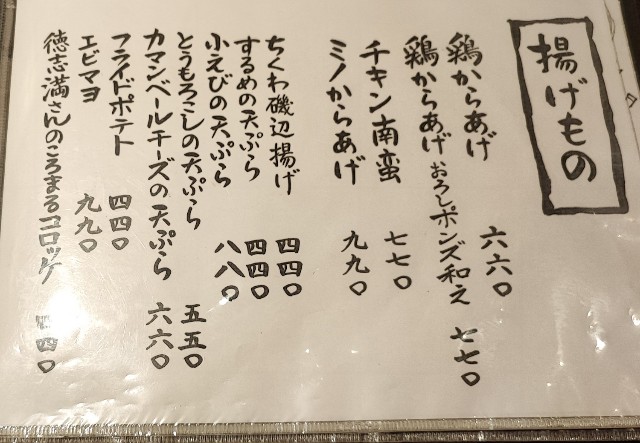 揚げもの
鶏からあげ 六六〇
鶏からあげおろしポンズ和え 七七〇
チキン南蛮 七七〇
ミノからあげ 九九〇
ちくわ磯辺揚げ 四四〇
するめの天ぷら 四四〇
小えびの天ぷら 八八〇
とうもろこしの天ぷら 五五〇
カマンベールチーズの天ぷら 六六〇
フライドポテト 四四〇
エビマヨ 九九〇
徳志満さんのころまるコロッケ 四四〇